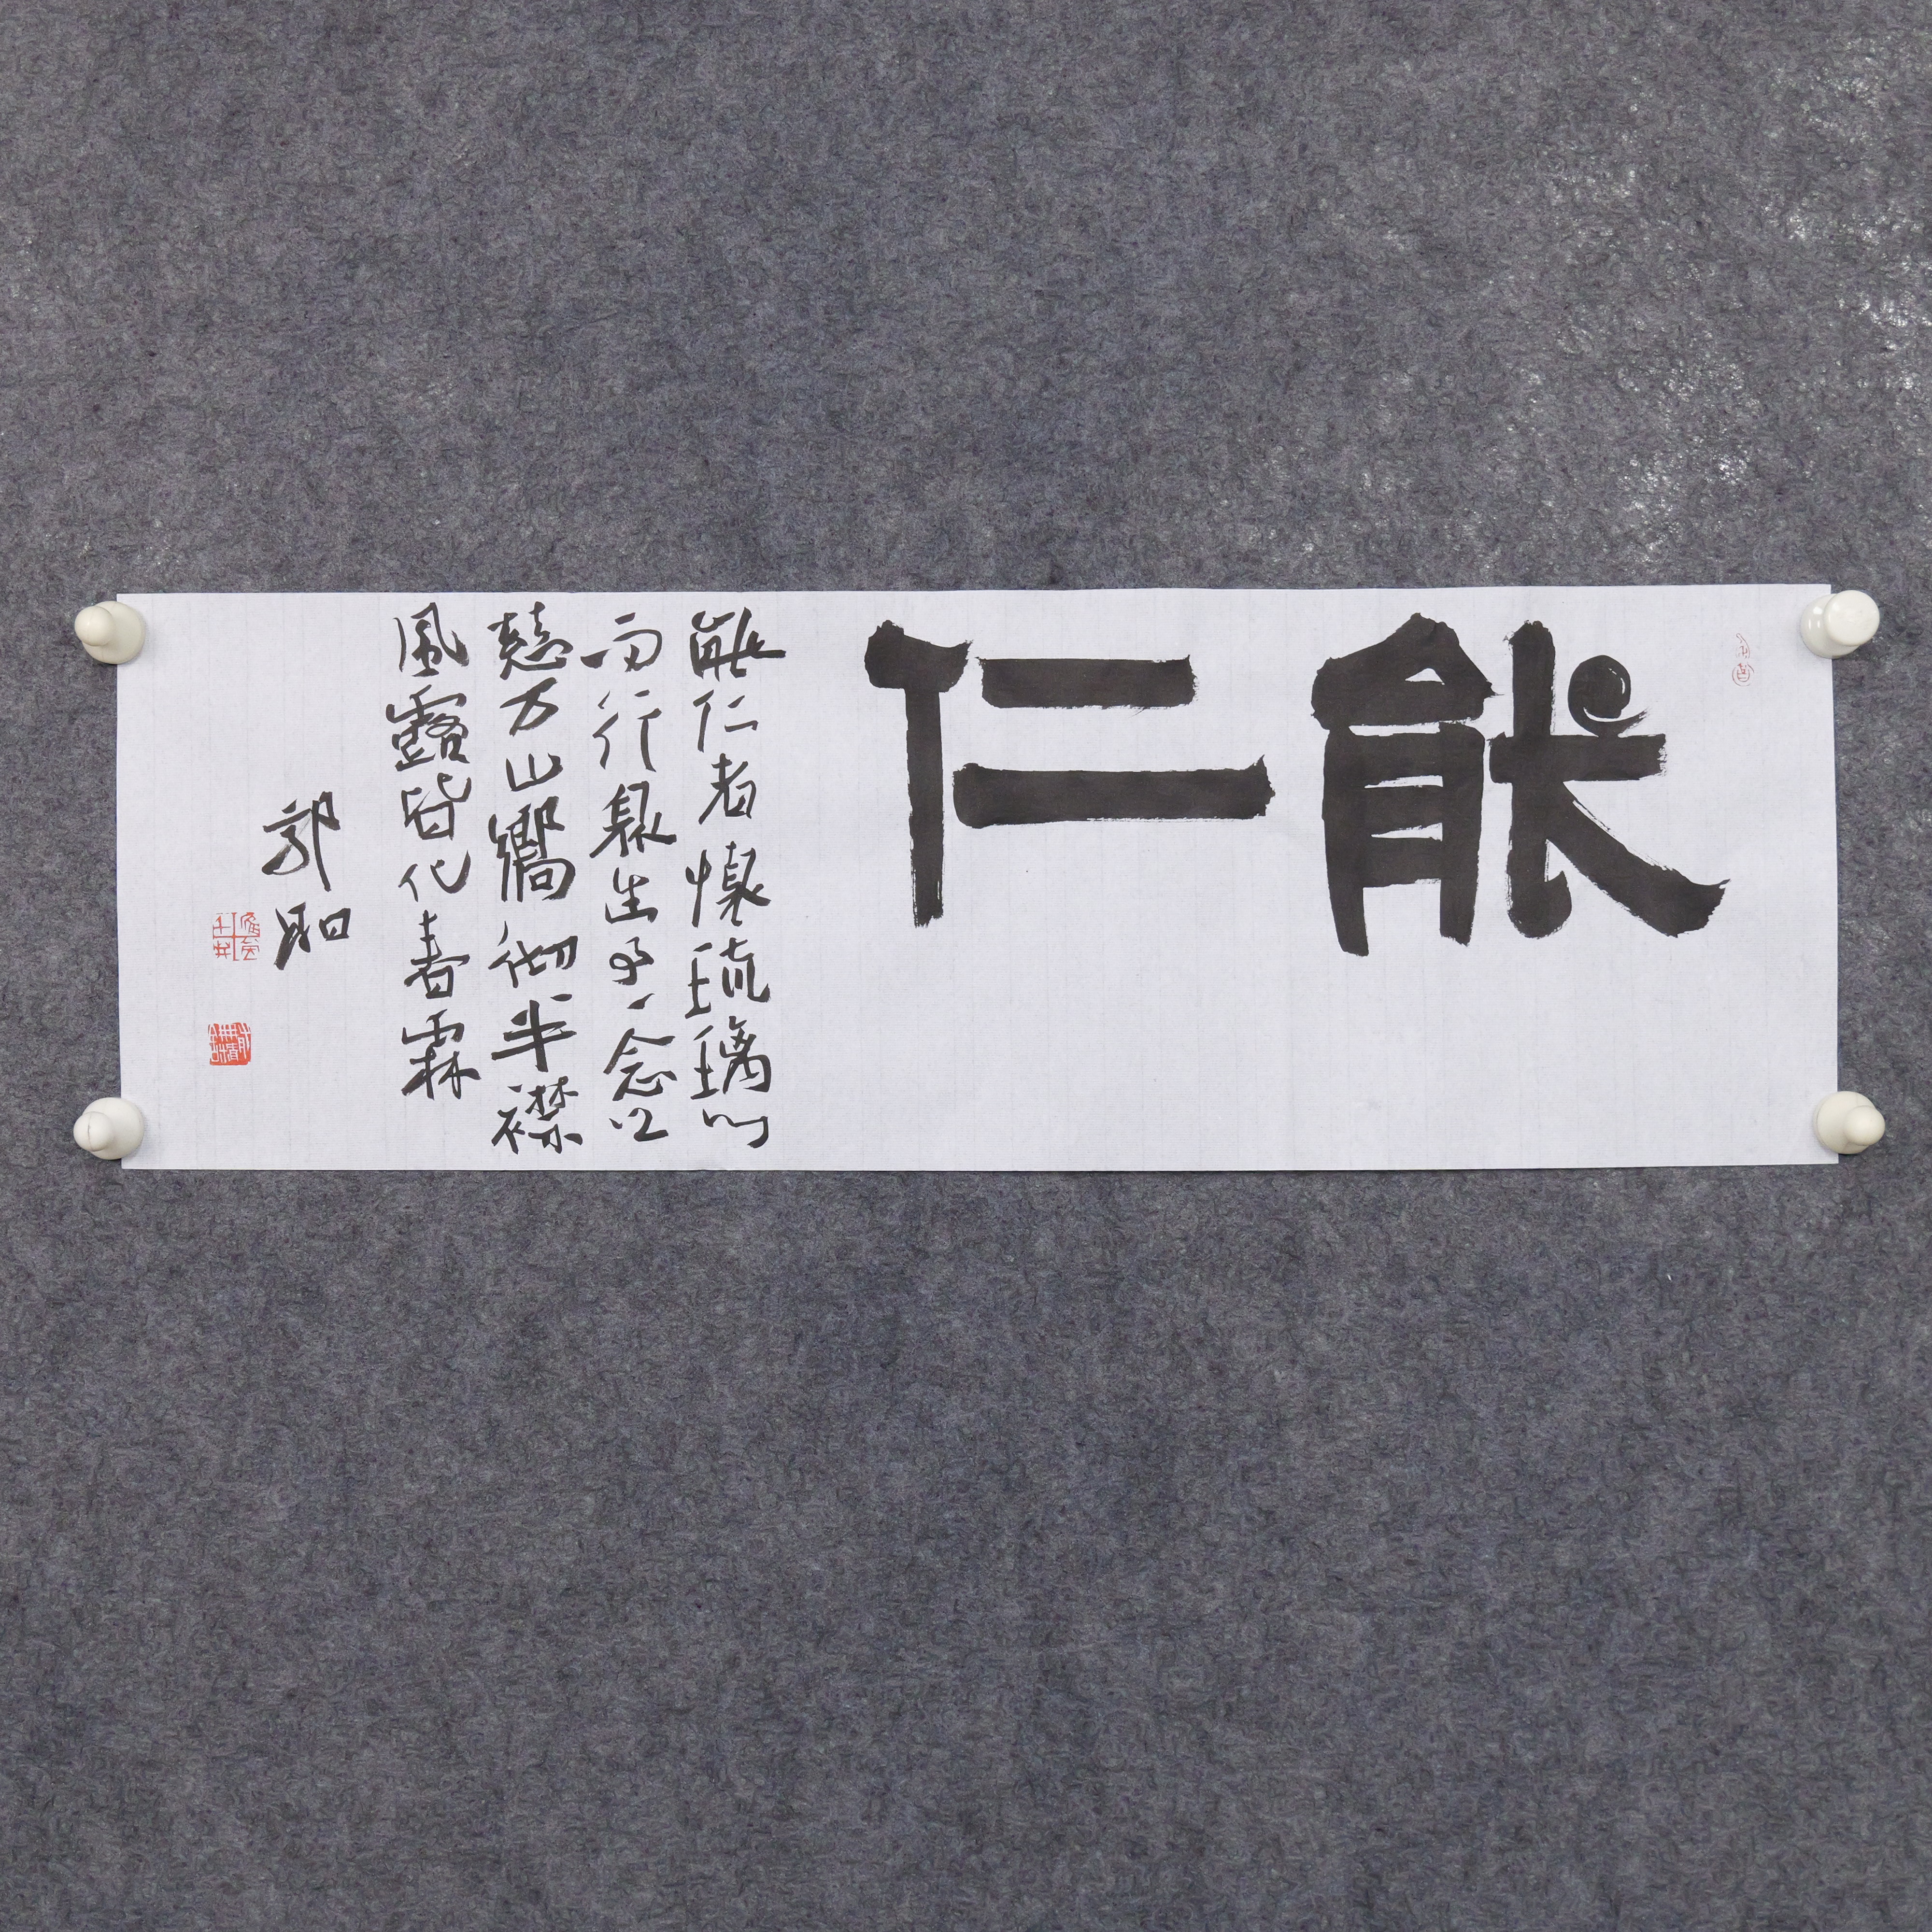 能仁
能仁者懷琉璃心
而行衆生事一念
慈万山響彻半襟
風露皆化春霖
郭